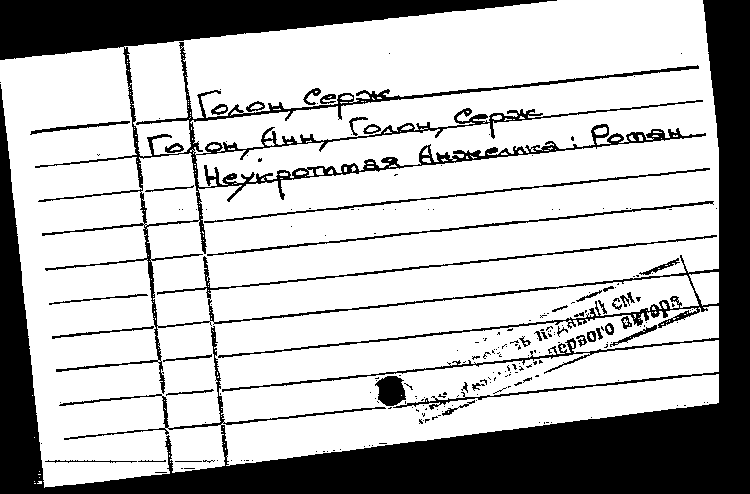 Голон, Серж
Голон, Анн, Голон, Серж
Неукротимая Анжелика: Роман.
изданий см.
первого автора